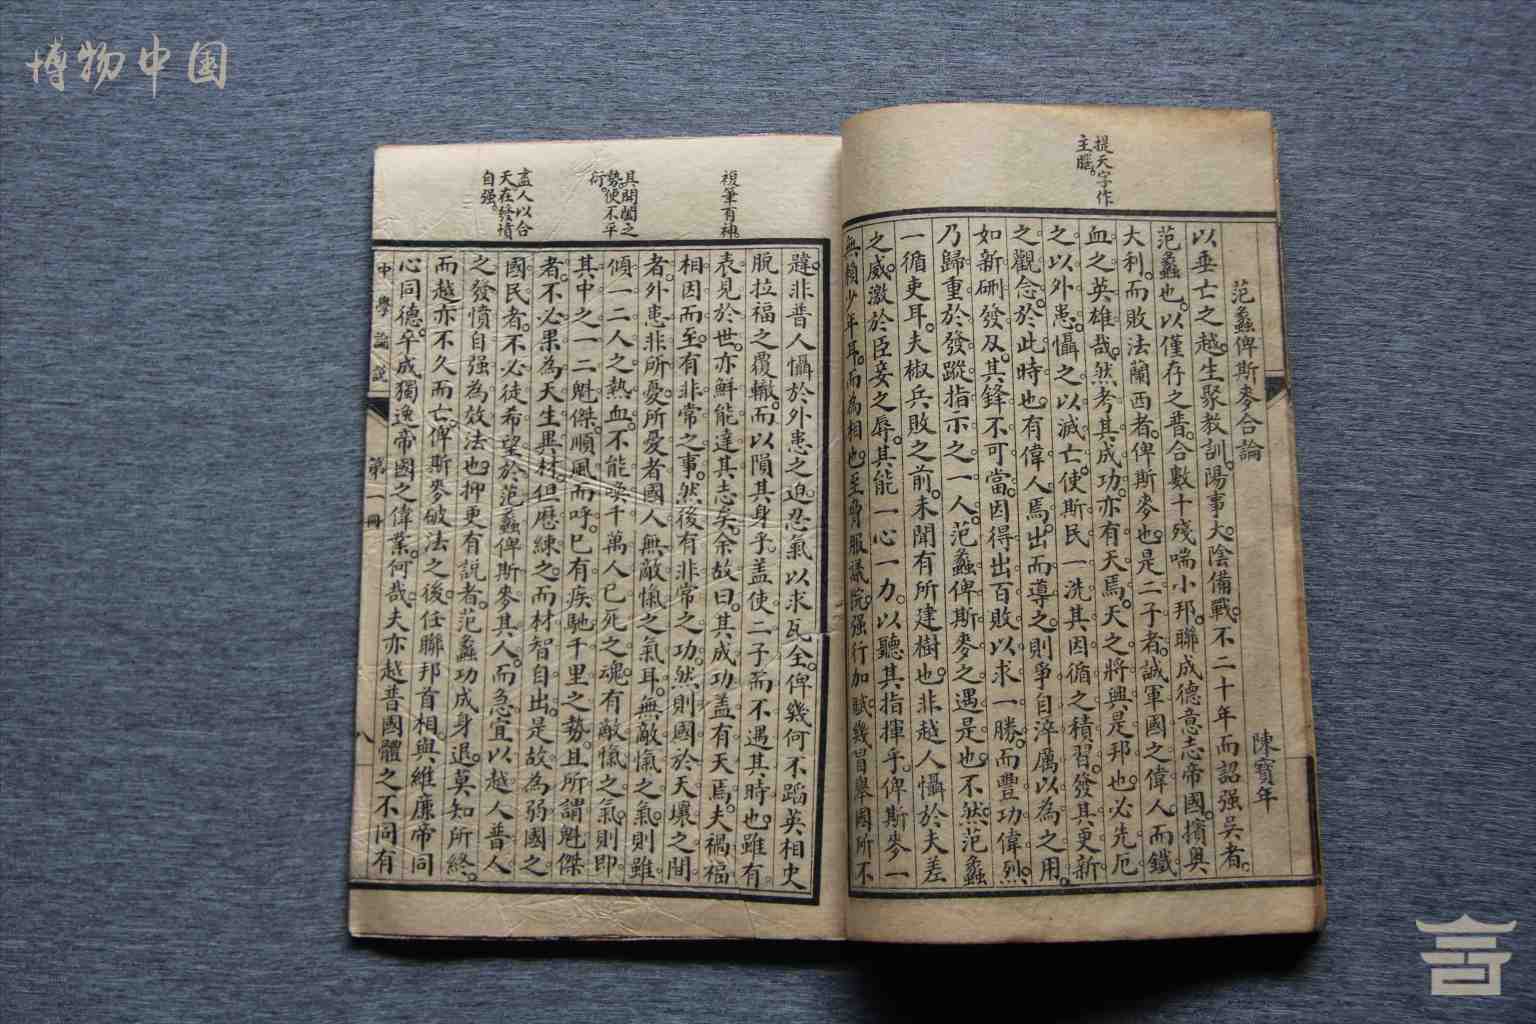 博物中国
提天字作
主腦。
范蠡俾斯麥合論
陳寶年
以垂亡之越。生聚教訓。陽事大。陰備戰。不二十年而詔强吳者。
范蠡也。以僅存之普。合數十殘喘小邦。聯成德意志帝國。擯奥
大利。而敗法蘭西者。俾斯麥也。是二子者。誠軍國之偉人。而鐵
血之英雄哉。然考其成功。亦有天焉。天之將興是邦也。必先厄
之以外患。懾之以滅亡。使斯民一洗其因循之積習。發其更新
之觀念。於此時也。有偉人焉。出而導之。則爭自淬厲。以為之用。
如新硎發刃。其鋒不可當。因得出百敗以求一勝。而豐功偉烈。
乃歸重於發蹤指示之一人。范蠡俾斯麥之遇是也。不然。范蠡
一循吏耳。夫椒兵敗之前。未聞有所建樹也。非越人懾於夫差
之威。激於臣妾之辱。其能一心一力。以聽其指揮乎。俾斯麥一
無賴少年耳。而為相也。至脅服議院。强行加賦。幾冒舉國所不
韙。非普人懾於外患之迫。忍氣以求瓦全。俾幾何不蹈英相史
脫拉福之覆轍。而以隕其身乎。蓋使二子而不遇其時也。雖有
表見於世。亦鮮能達其志矣。余故曰。其成功蓋有天焉。夫禍福
相因而至。有非常之事。然後有非常之功。然則國於天壤之間
者。外患非所憂。所憂者國人無敵愾之氣耳。無敵愾之氣。則雖
傾一二人之熱血。不能喚千萬人已死之魂。有敵愾之氣。則即
其中之一二魁傑。順風而呼。已有疾馳千里之勢。且所謂魁傑
者。不必果為天生異材。但歷練之。而材智自出。是故為弱國之
國民者。不必徒希望於范蠡俾斯麥其人。而急宜以越人普人
之發憤自强為效法也。抑更有說者。范蠡功成身退。莫知所終。
而越亦不久而亡。俾斯麥破法之後。任聯邦首相。與維廉帝同
心同德。卒成獨逸帝國之偉業。何哉。夫亦越普國體之不同有
複筆有神。
具開闔之
勢。便不平
衍。
盡人以合
天在發憤
自强。
中學論說
第一冊
八